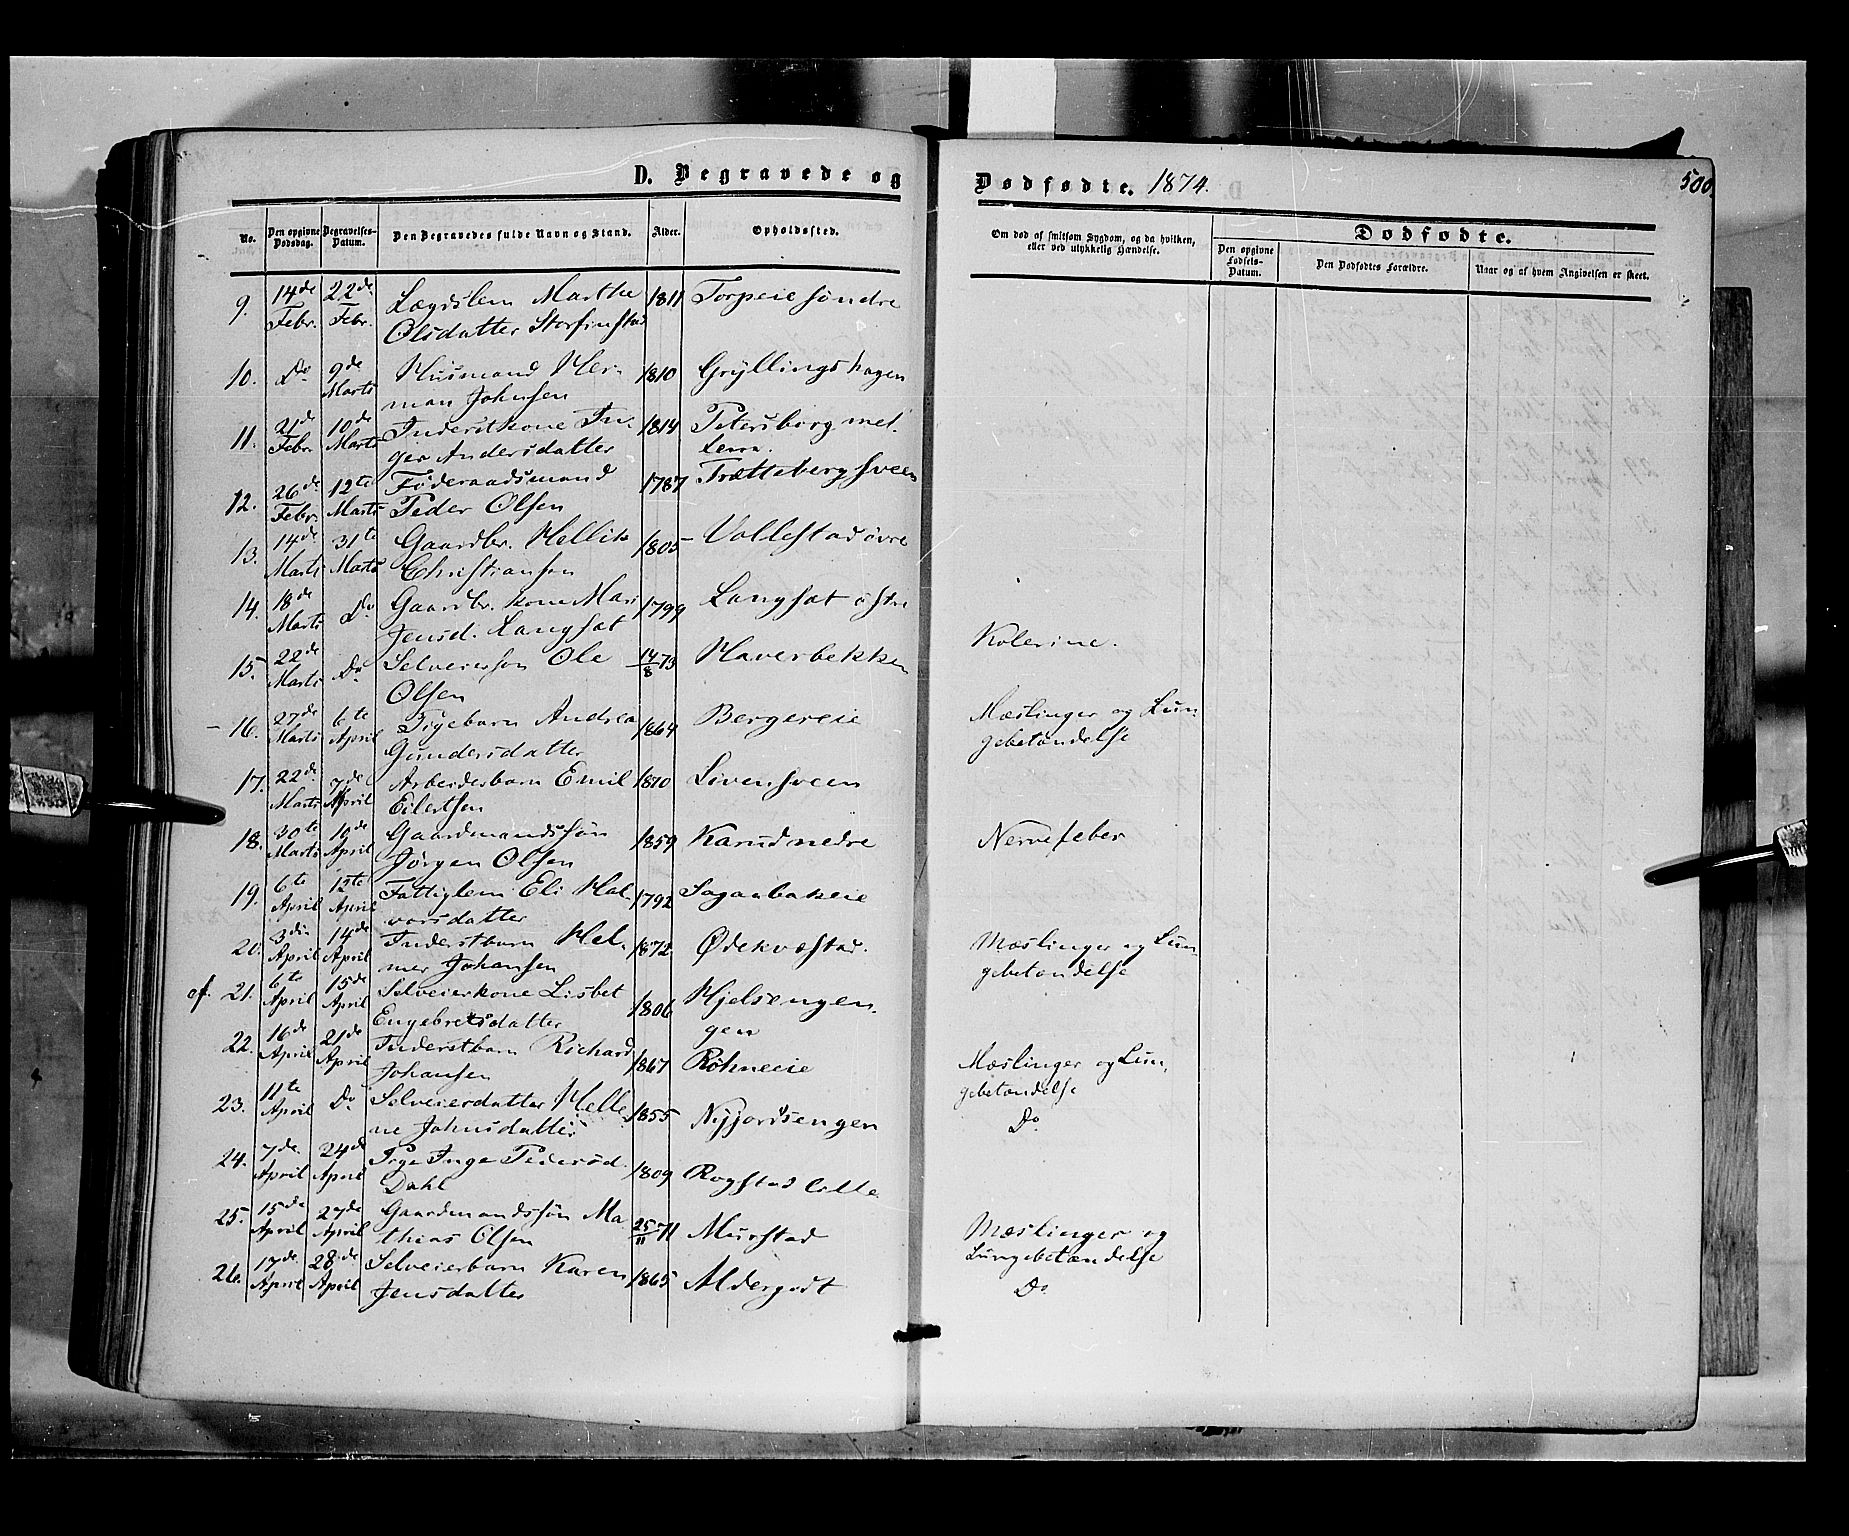 D. Begravede og
Dødfødte. 1874.
500.
No.
Den opgivne Dødsdag.
Begravelses-Datum.
Den Begravedes fulde Navn og Stand.
Alder.
Opholdssted.
Om død af smitsom Sygdom, og da hvilken,
eller ved ulykkelig Hændelse.
Dødfødte.
Den opgivne Fødsels-Datum.
Den Dødfødtes Forældre.
Naar og af hvem Angivelsen er skeet.
9. 14de Febr. 22de Febr. Lægdslem Marthe 1811 Torpeie søndre
Olsdatter Storfinstad
10. Do 9de Marts Huusmand Her- 1810 Gryllingshagen
man Johnsen
11. 21de Febr. 10de Marts Inderstkone In- 1814 Petersborg mel-
ger Andersdatter lem.
12. 26de Febr. 12te Marts Føderaadsmand 1787 Trættebergsveen
Peder Olsen
13. 14de Marts 31te Marts Gaardbr. Hellik 1805 Vollestad øvre
Christiansen
14. 18de Marts Do Gaardbr. kone Mari 1799 Langsæt østre
Jensd. Langsæt
15. 22de Marts Do Selveiersøn Ole 14/8 73 Haverbekken Kolerine.
Olsen
16. 27de Marts 6te April Pigebarn Andrea 1864 Bergereie Mæslinger og Lun-
Gundersdatter gebetændelse
17. 22de Marts 7de April Arbeiderbarn Emil 1870 Livensveen
Eilertsen
18. 30te Marts 10de April Gaardmandssøn 1859 Karud nedre Nervefeber
Jørgen Olsen
19. 6te April 12te April Fattiglem Eli Hal- 1792 Sagabakeie
vorsdatter
20. 3die April 14de April Inderstbarn Hel- 1872 Ødekvæstad. Mæslinger og Lun-
mer Johansen gebetændelse
cf. 21. 6te April 15de April Selveierkone Lisbet 1806 Hjelsengen-
Engebretsdatter gen
22. 16de April 21de April Inderstbarn Richard 1867 Røhneeie Mæslinger og Lun-
Johansen gebetændelse
23. 11te April Do Selveierdatter Helle- 1855 Nyjordsengen Do
ne Johnsdatter
24. 7de April 24de April Pige Inge Pedersd. 1809 Rogstad lille
Dahl
25. 15de April 27de April Gaardmandssøn Ma- 25/11 71 Murstad Mæslinger og
thias Olsen Lungebetændelse
26. 17de April 28de April Selveierbarn Karen 1865 Aldergodt Do
Jensdatter